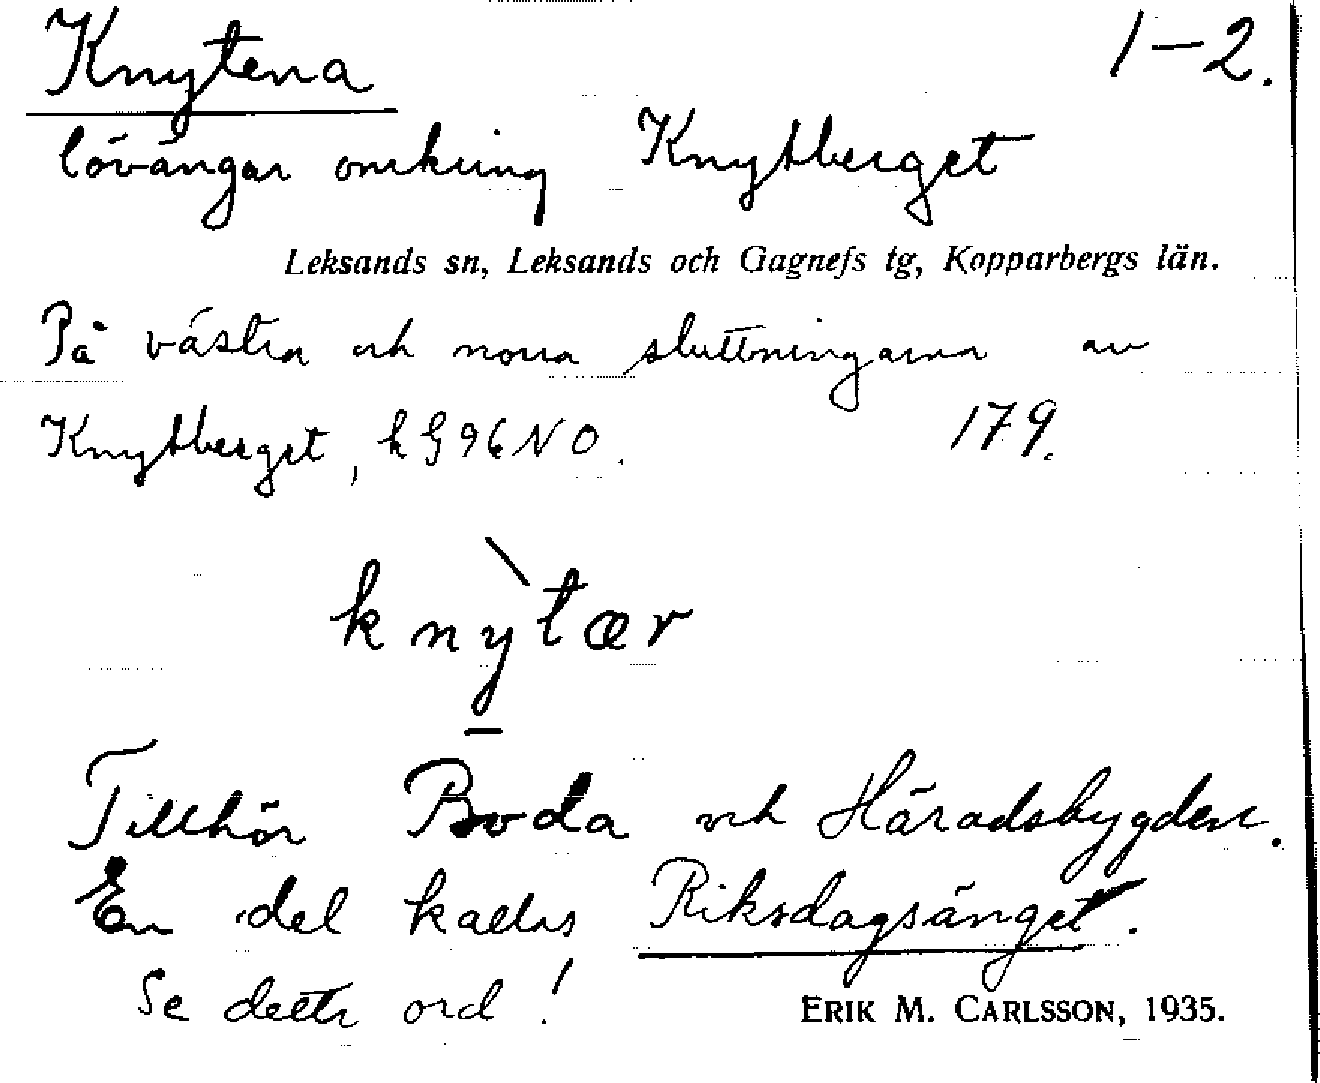 Knytena 1–2.
lövängar omkring Knytberget
Leksands sn, Leksands och Gagnefs tg, Kopparbergs län.
På västra och norra sluttningarna av
Knytberget, k § 96 N O. 179.
knỳtær
Tillhör Boda och Häradsbygden.
En del kallas Riksdagsänget.
Se detta ord!
ERIK M. CARLSSON, 1935.